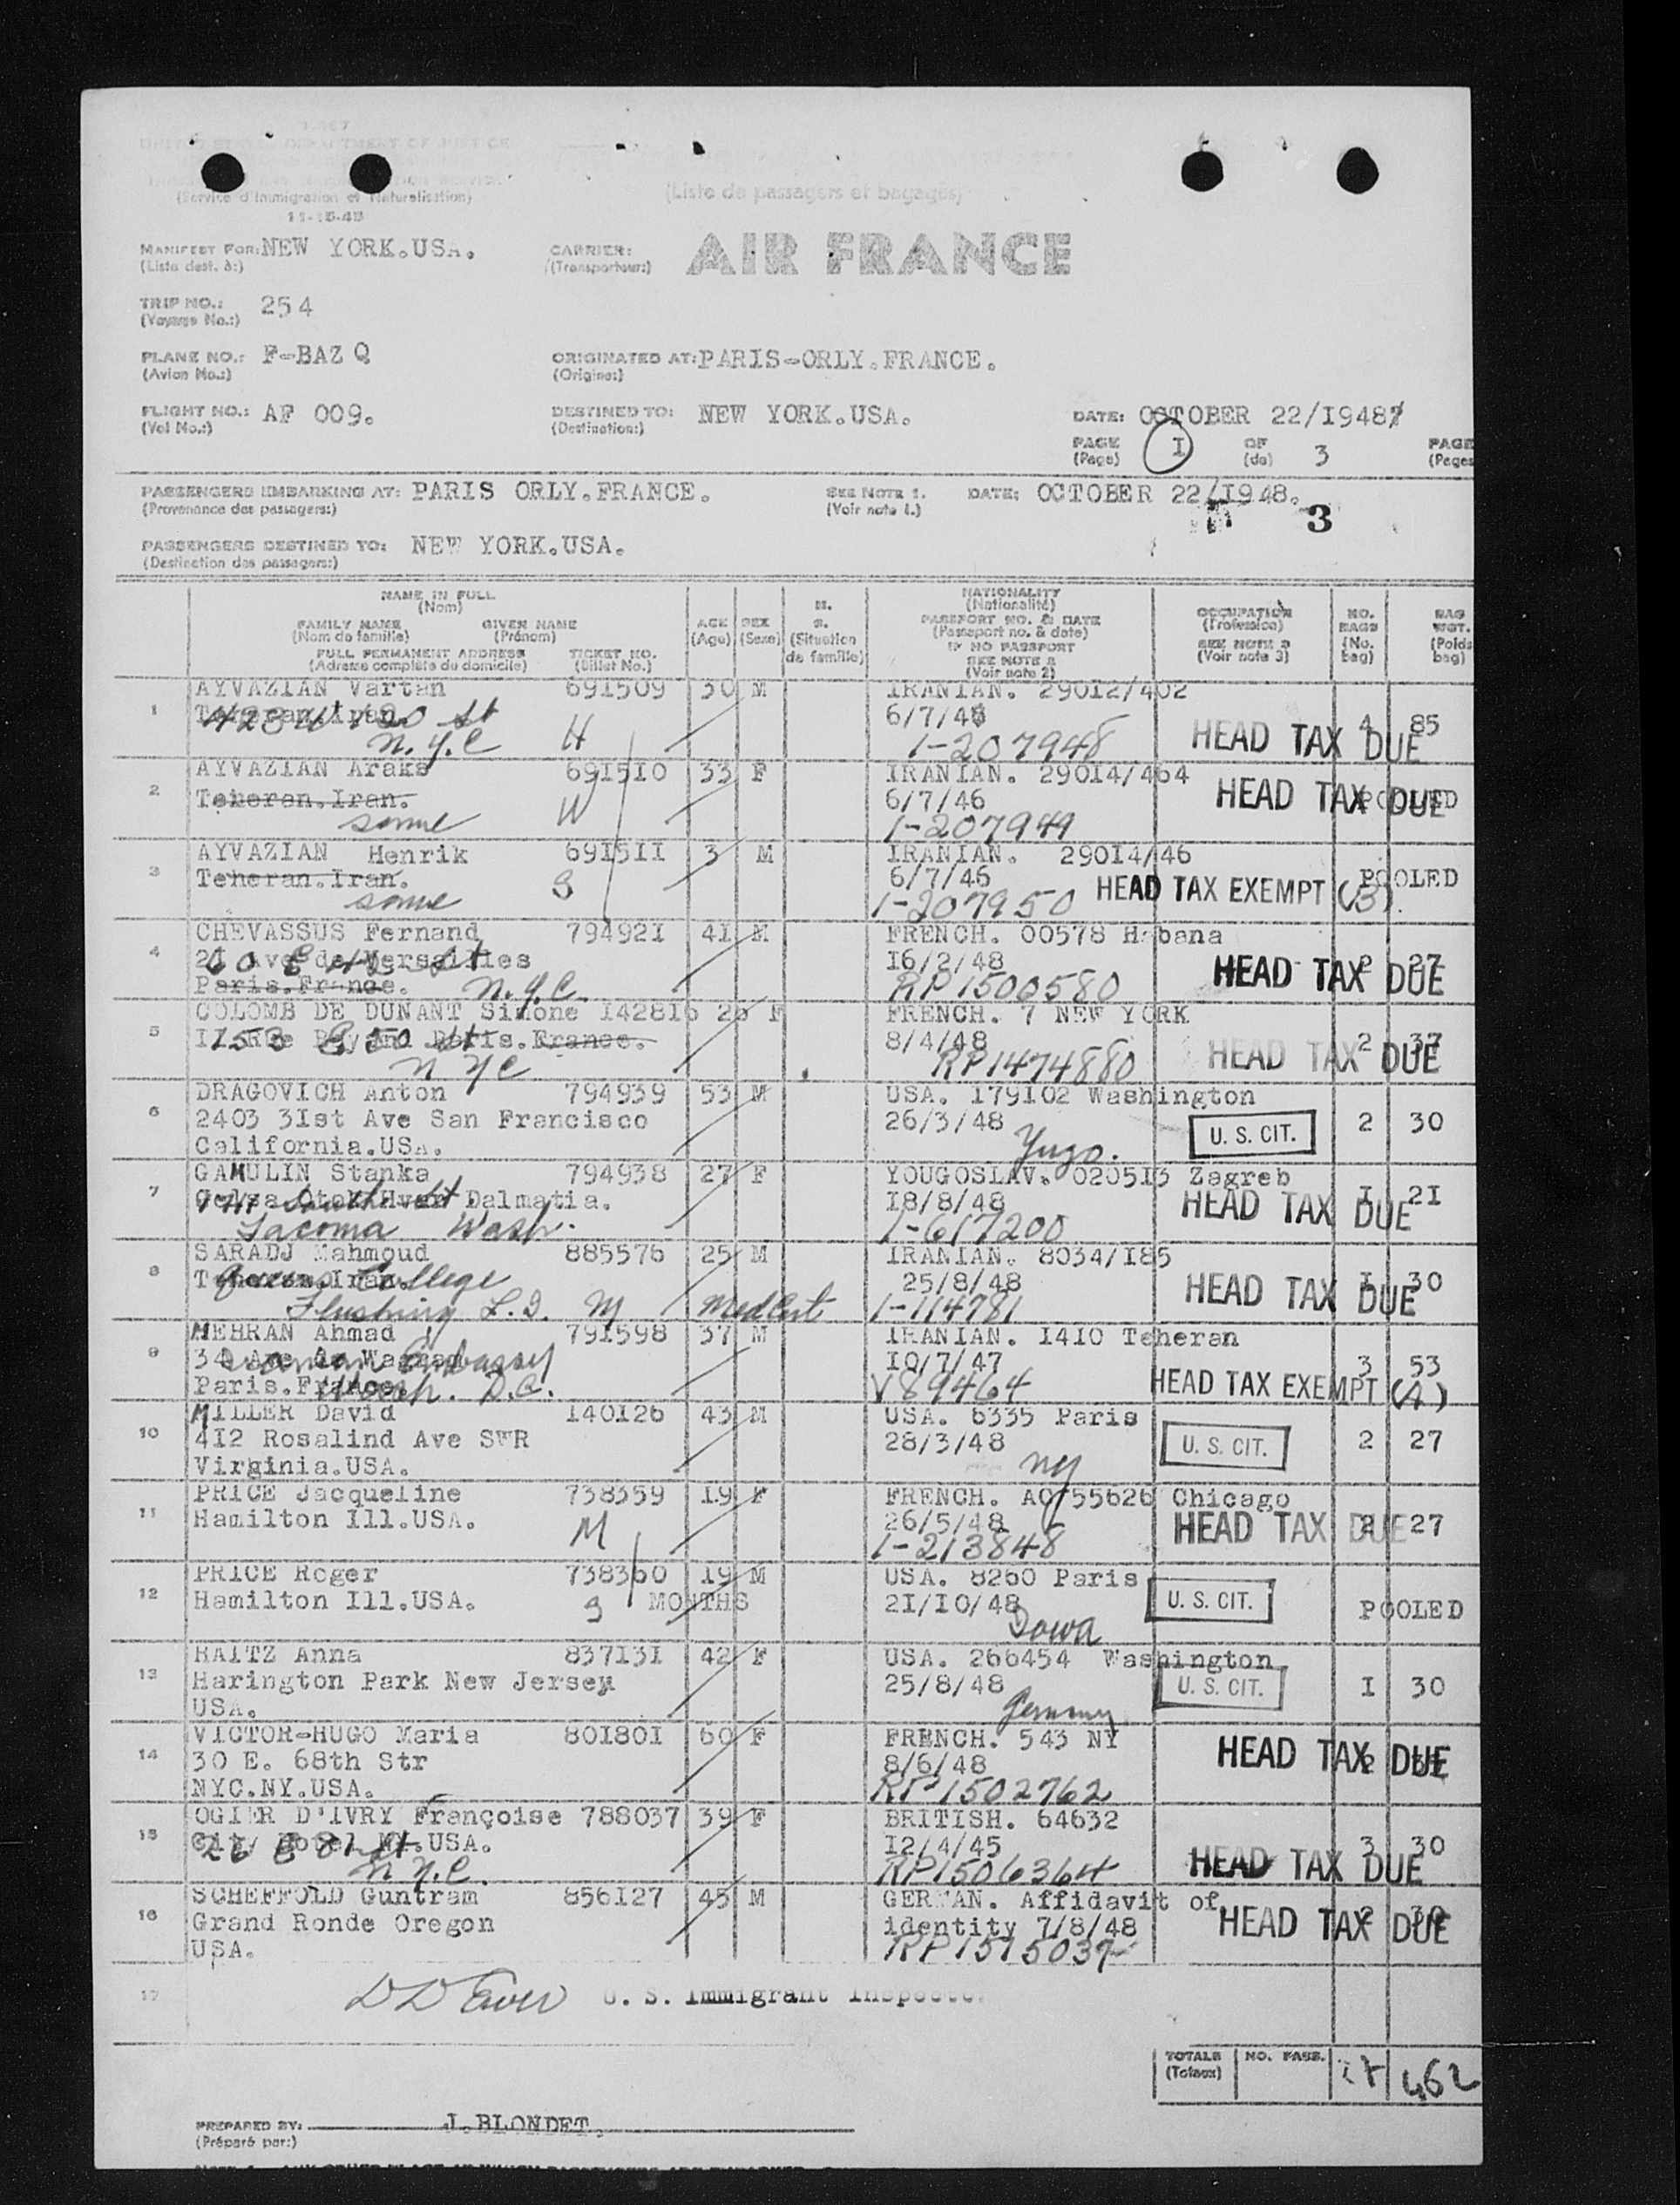 UNITED STATES DEPARTMENT OF JUSTICE
(Service d'Immigration et Naturalisation)
11-15-45
(Liste de passagers et bagages)
MANIFEST FOR: NEW YORK.USA.
(Liste dest. à:)
CARRIER: AIR FRANCE
(Transporteur:)
TRIP NO.: 254
(Voyage No.:)
PLANE NO.: F-BAZQ
(Avion No.:)
ORIGINATED AT: PARIS-ORLY.FRANCE.
(Origine:)
FLIGHT NO.: AF 009.
(Vol No.:)
DESTINED TO: NEW YORK.USA.
(Destination:)
DATE: OCTOBER 22/I948
PAGE I OF 3 PAGE
(Page) (de) (Pages
PASSENGERS EMBARKING AT: PARIS ORLY.FRANCE.
(Provenance des passagers:)
SEE NOTE 1.
(Voir note 1.)
DATE: OCTOBER 22/I948.
3
PASSENGERS DESTINED TO: NEW YORK.USA.
(Destination des passagers:)
NAME IN FULL
(Nom)
FAMILY NAME GIVEN NAME
(Nom de famille) (Prénom)
FULL PERMANENT ADDRESS TICKET NO.
(Adresse complète du domicile) (Billet No.)
AGE
(Age)
SEX
(Sexe)
M.
S.
(Situation
de famille)
NATIONALITY
(Nationalité)
PASSPORT NO. & DATE
(Passeport no. & date)
IF NO PASSPORT
SEE NOTE 2
(Voir note 2)
OCCUPATION
(Profession)
SEE NOTE 3
(Voir note 3)
NO.
BAGS
(No.
bag)
BAG
WGT.
(Poids
bag)
1 AYVAZIAN Vartan 691509 30 M IRANIAN. 29012/402
Teheran.Iran. 6/7/46 4 85
N.Y.C H 1-207948 HEAD TAX DUE
2 AYVAZIAN Araks 691510 33 F IRANIAN. 29014/464
Teheran.Iran. 6/7/46 HEAD TAX DUE POOLED
same W 1-207949
3 AYVAZIAN Henrik 691511 3 M IRANIAN. 29014/46
Teheran.Iran. S 6/7/46 POOLED
same 1-207950 HEAD TAX EXEMPT (3)
4 CHEVASSUS Fernand 794921 41 M FRENCH. 00578 Habana
Ave de Versailles 16/2/48 2 27
Paris.France. N.Y.C. RP1500580 HEAD TAX DUE
5 COLOMB DE DUNANT Simone 142816 26 F FRENCH. 7 NEW YORK
Paris.France. 8/4/48 2 37
N Y C RP1474880 HEAD TAX DUE
6 DRAGOVICH Anton 794939 53 M USA. 179102 Washington
2403 31st Ave San Francisco 26/3/48 U. S. CIT. 2 30
California.USA. Yugo.
7 GAMULIN Stanka 794938 27 F YOUGOSLAV. 020513 Zagreb
Dalmatia. 18/8/48 I 21
Tacoma Wash. 1-617200 HEAD TAX DUE
8 SARADJ Mahmoud 885576 25 M IRANIAN. 8034/185
Teheran.Iran. Queens College 25/8/48 I 30
Flushing L.I. M Med Cert 1-114781 HEAD TAX DUE
9 MEHRAN Ahmad 791598 37 M IRANIAN. 1410 Teheran
34 Ave de Wagram Iranian Embassy 10/7/47 3 53
Paris.France. Wash. D.C. V89464 HEAD TAX EXEMPT (4)
10 MILLER David 140126 43 M USA. 6335 Paris
412 Rosalind Ave SWR 28/3/48 U. S. CIT. 2 27
Virginia.USA. NY
11 PRICE Jacqueline 738359 19 F FRENCH. AO 55626 Chicago
Hamilton Ill.USA. 26/5/48 2 27
M 1-213848 HEAD TAX DUE
12 PRICE Roger 738360 19 M USA. 8260 Paris
Hamilton Ill.USA. S MONTHS 21/10/48 U. S. CIT. POOLED
Iowa
13 RAITZ Anna 837131 42 F USA. 266454 Washington
Harington Park New Jersey 25/8/48 U. S. CIT. I 30
USA. Germany
14 VICTOR-HUGO Maria 801801 60 F FRENCH. 543 NY
30 E. 68th Str 8/6/48 HEAD TAX DUE 2
NYC.NY.USA. RP1502762
15 OGIER D'IVRY Françoise 788037 39 F BRITISH. 64632
City Hotel NY.USA. 12/4/45 3 30
N.Y.C. RP1506364 HEAD TAX DUE
16 SCHEFFOLD Guntram 856127 45 M GERMAN. Affidavit of
Grand Ronde Oregon identity 7/8/48 HEAD TAX DUE 2 30
USA. RP1515037
17 U. S. Immigrant Inspector
TOTALS NO. PASS. 462
(Totaux)
PREPARED BY: J.BLONDET.
(Préparé par:)